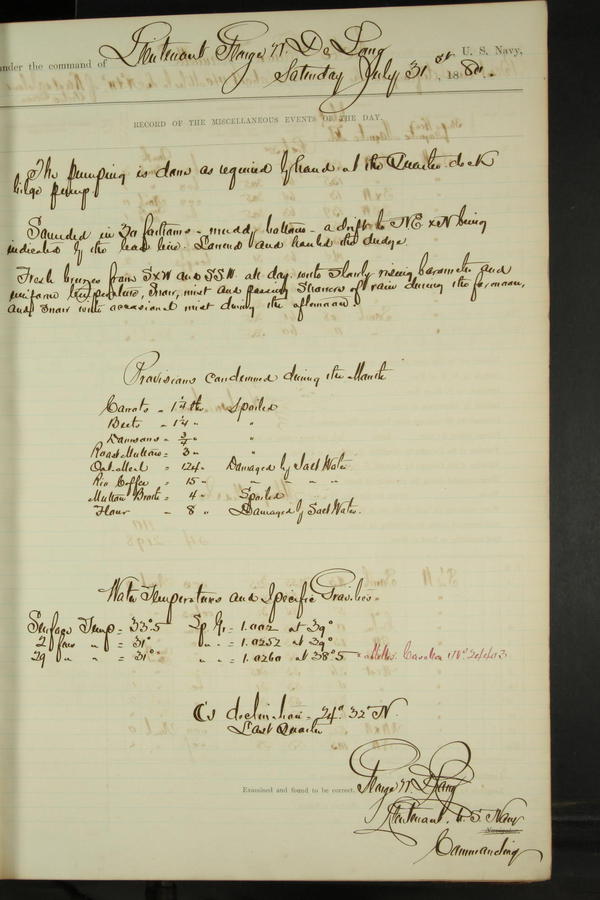 under the command of Lieutenant George W. De Long U. S. Navy,
Saturday July 31st, 1880.
RECORD OF THE MISCELLANEOUS EVENTS OF THE DAY.
The pumping is done as required by hand at the Quarter deck
bilge pump.
Sounded in fathoms - muddy bottom - a drift to NE x N being
indicated by the lead line. Lowered and hauled the dredge.
Fresh breezes from SxW and SSW. all day with slowly rising barometer and
uniform temperature, Snow, mist and passing showers of rain during the forenoon,
and snow with occasional mist during the afternoon.
Provisions condemned during the Month
Carrots - Spoiled
Beets - "
Damsons = 3/4 " "
Roast Mutton = 3 " "
Oat Meal = 124 " Damaged by Salt Water
Rio Coffee = 15 " " " "
Mutton Broth = 4 " Spoiled
Flour - 8 " Damaged by Salt Water.
Water Temperatures and Specific Gravities
Surface Temp = 33°.5 Sp. Gr = 1.002 at 39°
2 fms " = 31° " " = 1.0252 at 39°
29 " " = 31° " " = 1.0260 at 38°.5
Cs declination = 24° 32' N.
Last Quarter
Examined and found to be correct. George W. De Long
Lieutenant, U. S. Navy
Commanding